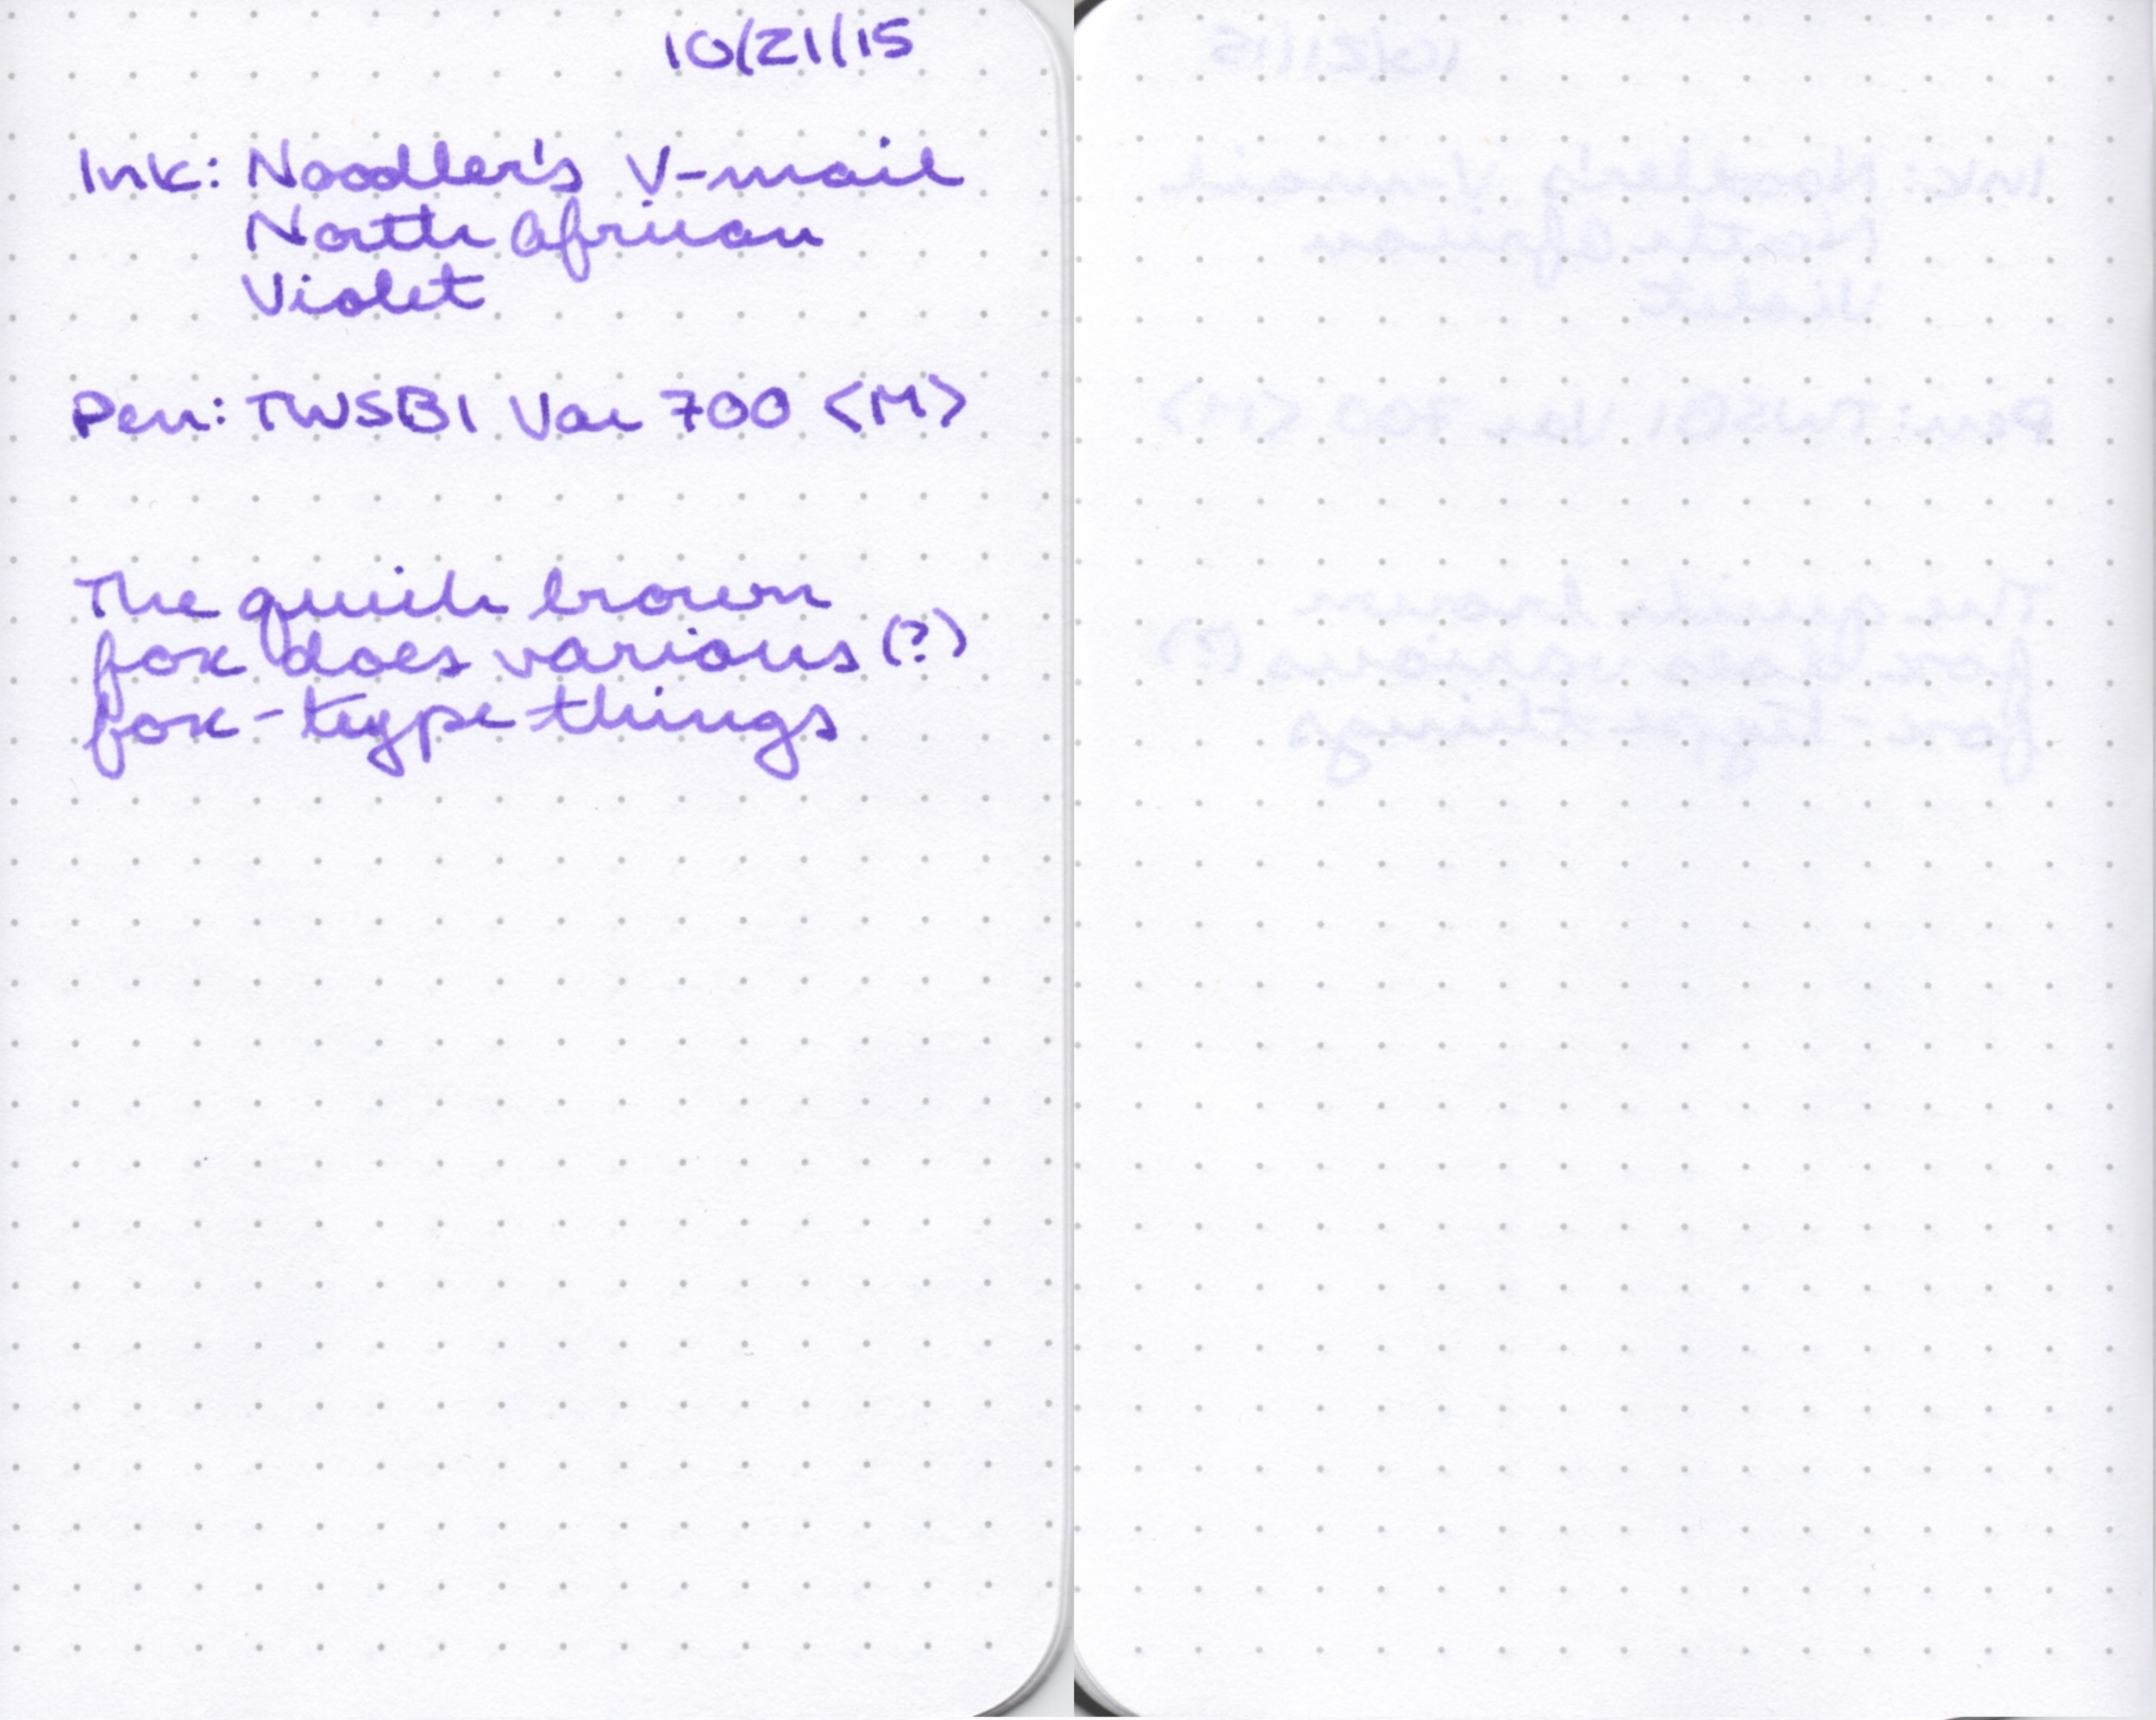 10/21/15
Ink: Noodler's V-mail
North African
Violet
Pen: TWSBI Vac 700 <M>
The quick brown
fox does various (?)
fox-type things